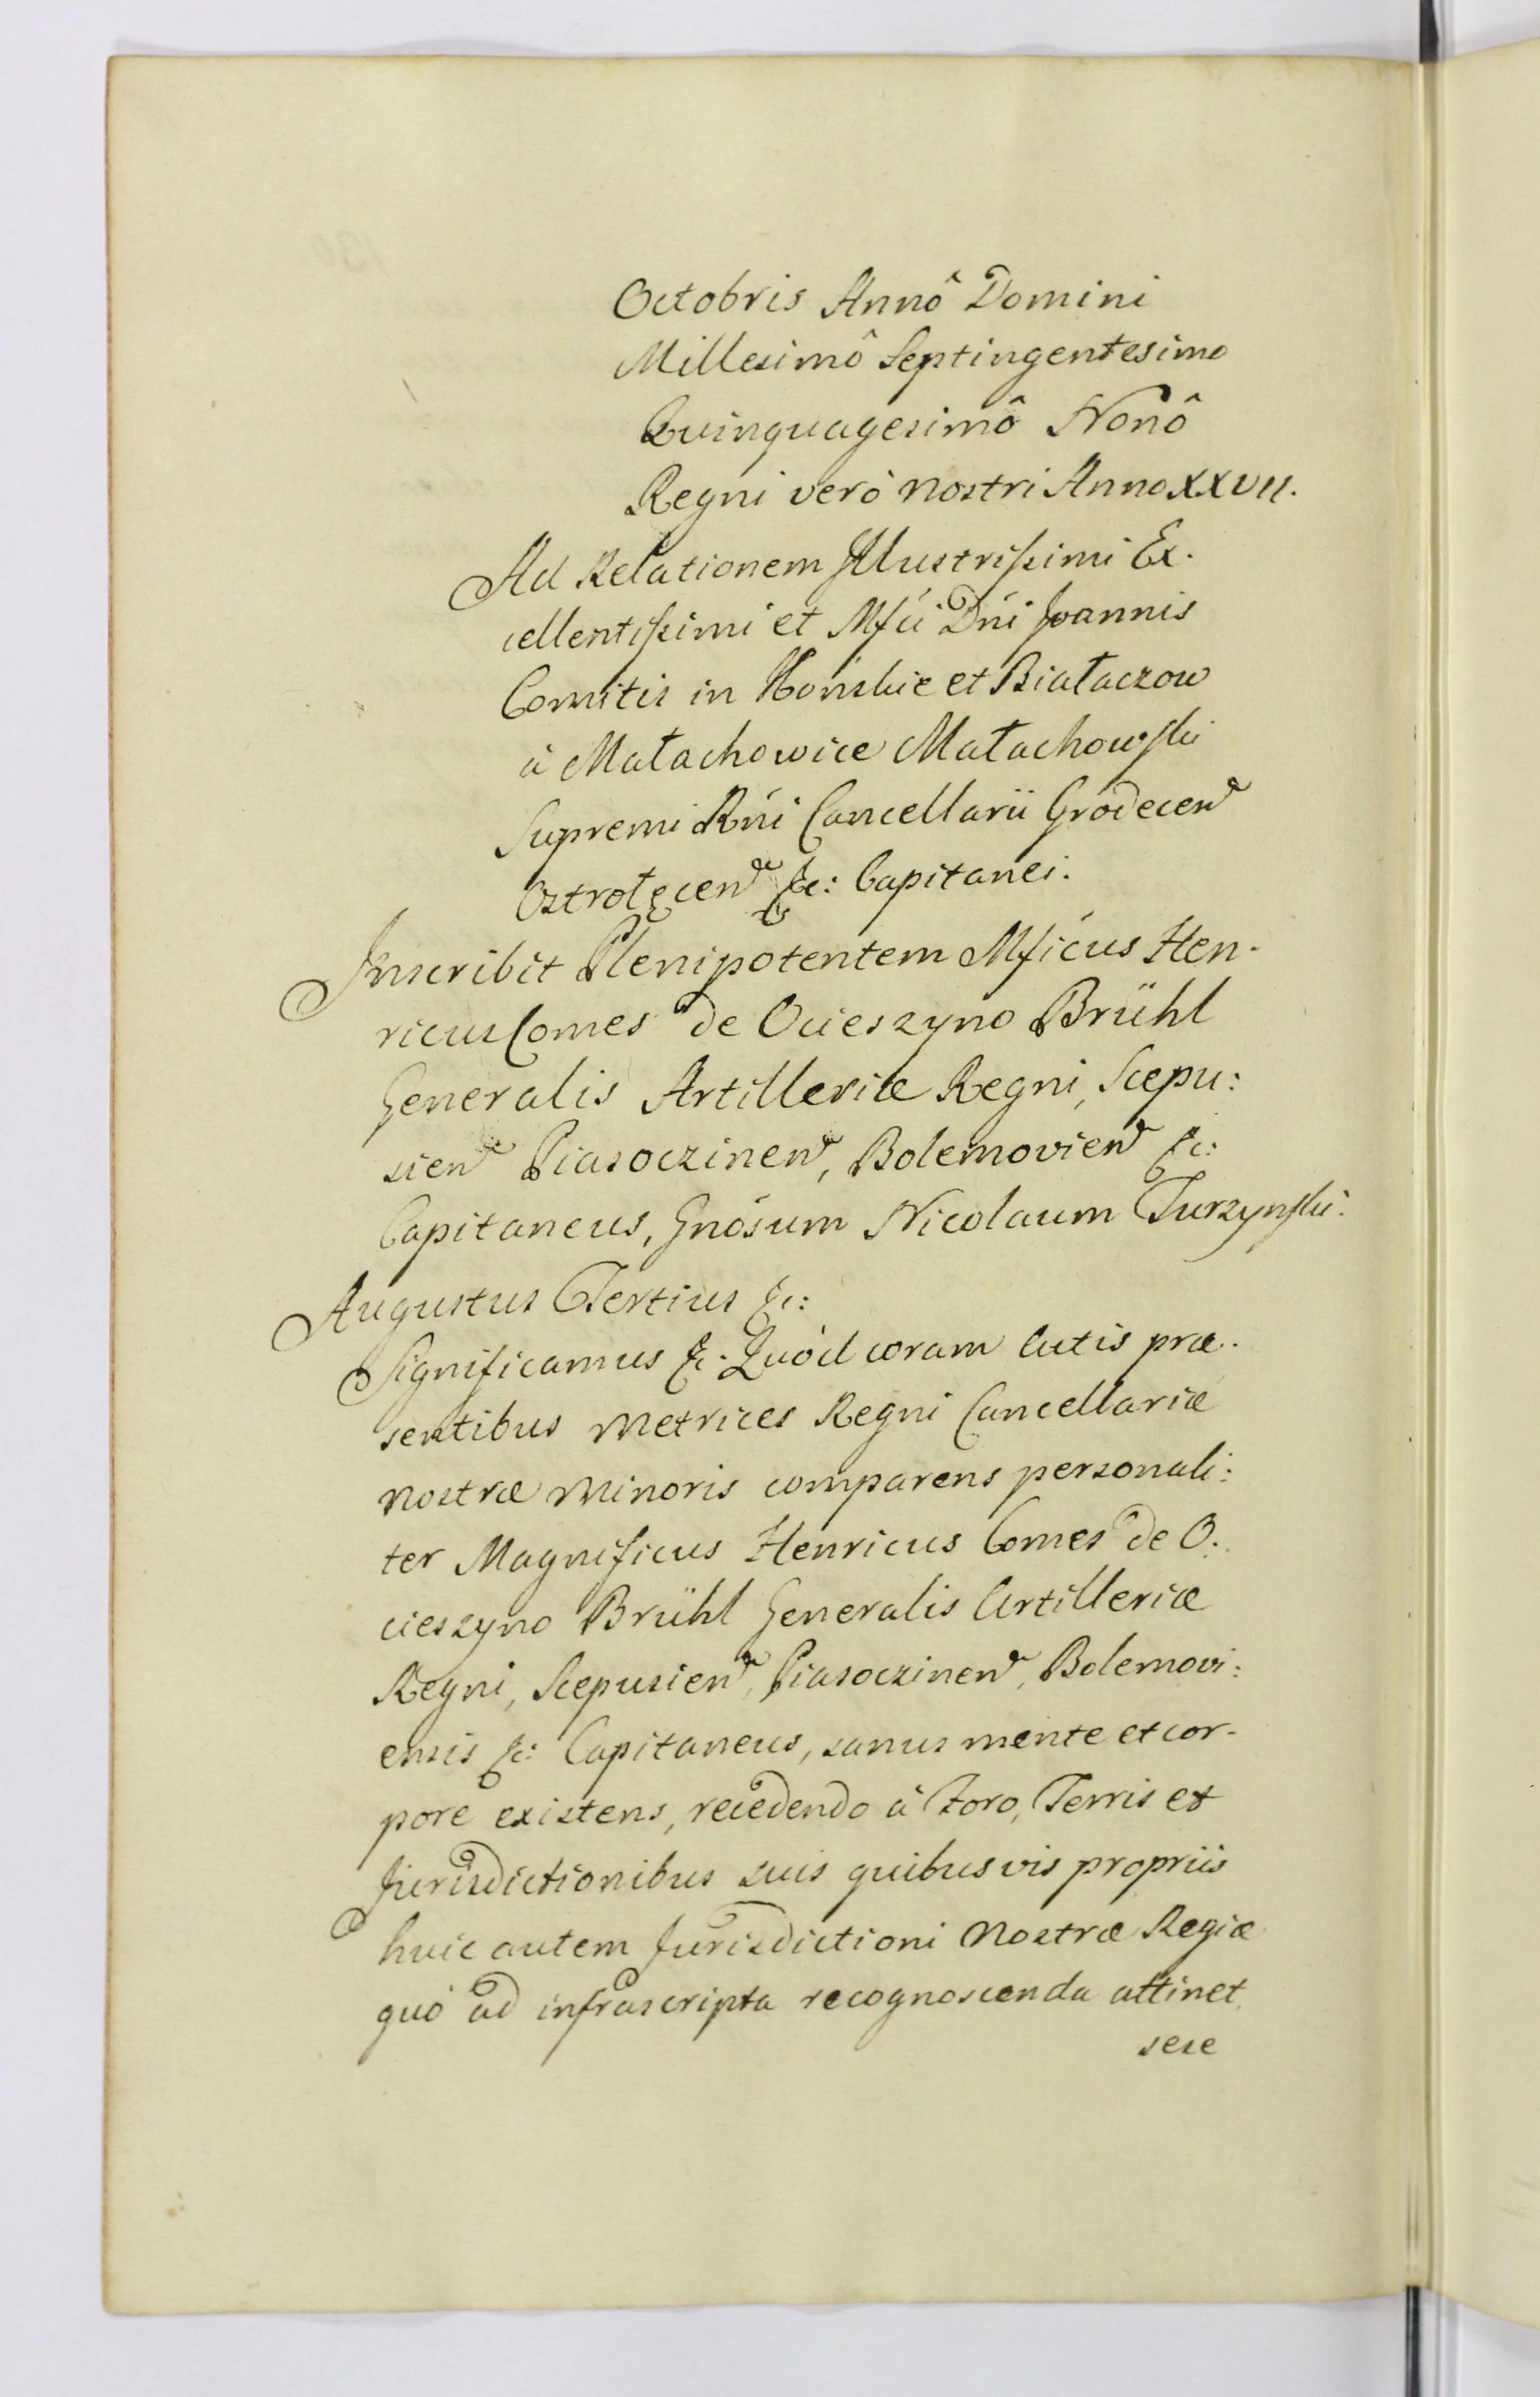 Octobris Annô Domini
Millesimô Septingentesimo
Quinquagesimô Nonô
Regni verò nostri Anno XXVII.
Ad Relationem Illustrißimi Ex-
cellentißimi et Mfci Dńi Joannis
Comitis in Końskie et Białaczow
à Małachowice Małachowski
Supremi Rńi Cancellarii Grodecen
Ostrołęcen &c: Capitanei.
Inscribit Plenipotentem Mficus Hen-
ricus Comes de Ocieszyno Brühl
Generalis Artilleriæ Regni, Scepu:
sien Piasoczinen, Bolemovien &c:
Capitaneus, Gnósum Nicolaum Turzynski:
Augustus Tertius &c:
Significamus &c. Quòd coram Actis præ-
sentibus Metrices Regni Cancellariæ
Nostræ Minoris comparens personali:
ter Magnificus Henricus Comes de O:
cieszyno Brühl Generalis Artilleriæ
Regni, Scepusien, Piasoczinen, Bolemovi:
ensis &c: Capitaneus, sanus mente et cor-
pore existens, recedendo à Foro, Terris et
Jurisdictionibus suis quibusvis propriis
huic autem Jurisdictioni Nostræ Regiæ
quò ad infrascripta recognoscenda attinet
sese